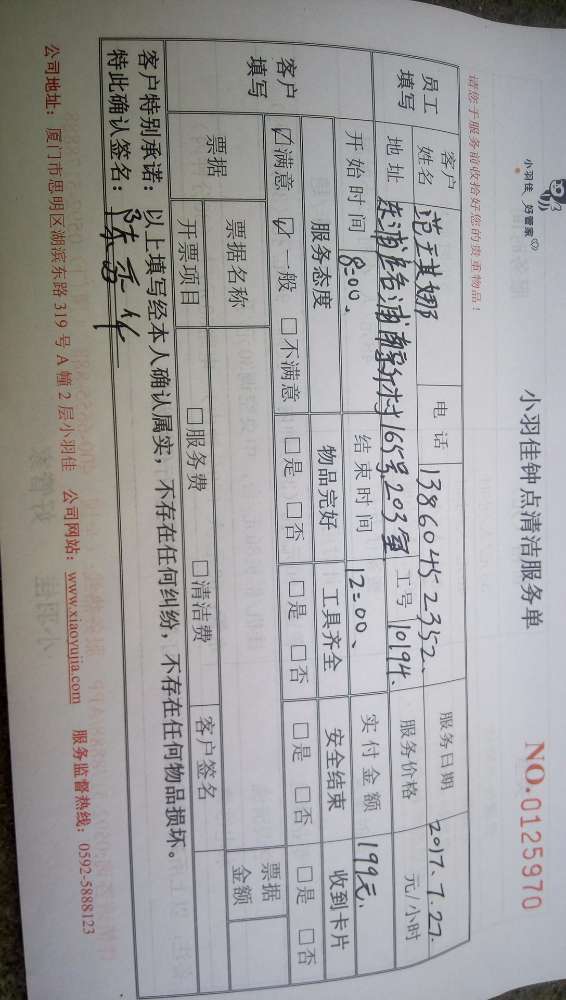 小羽佳 好管家
小羽佳钟点清洁服务单
NO.0125970
请您于服务前收拾好您的贵重物品！
员工填写
客户姓名 范 其娜 电话 13860452352 服务日期 2017.7.27.
地址 东浦 浦南 村165号203室 工号 10194. 服务价格 元/小时
开始时间 8:00、 结束时间 12:00、 实付金额 199元.
客户填写
服务态度 物品完好 工具齐全 安全结束 收到卡片
☑满意 ☑一般 □不满意 □是 □否 □是 □否 □是 □否 □是 □否
票据 票据名称 票据金额
开票项目 □服务费 □清洁费 客户签名
客户特别承诺：以上填写经本人确认属实，不存在任何纠纷，不存在任何物品损坏。
特此确认签名：陈 华
公司地址：厦门市思明区湖滨东路 319 号 A 幢 2 层小羽佳 公司网站：www.xiaoyujia.com 服务监督热线：0592-5888123